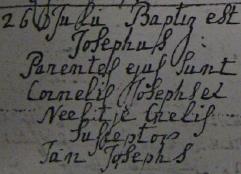 26 Julii Baptiz est
Josephus
Parentes ejus sunt
Cornelis Josephsel
Neeltje Crelis
Susceptor
Jan Josephs